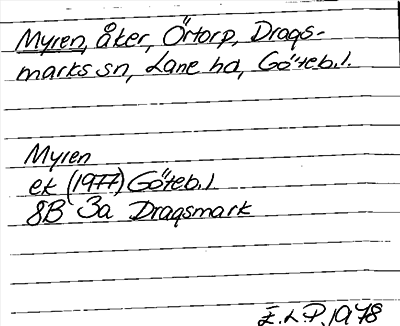 Myren, åker, Örtorp, Drags-
marks sn, Lane hd, Göteb. l.
Myren
ek (1977) Göteb. l
8B 3a Dragsmark
E.L.P. 1978